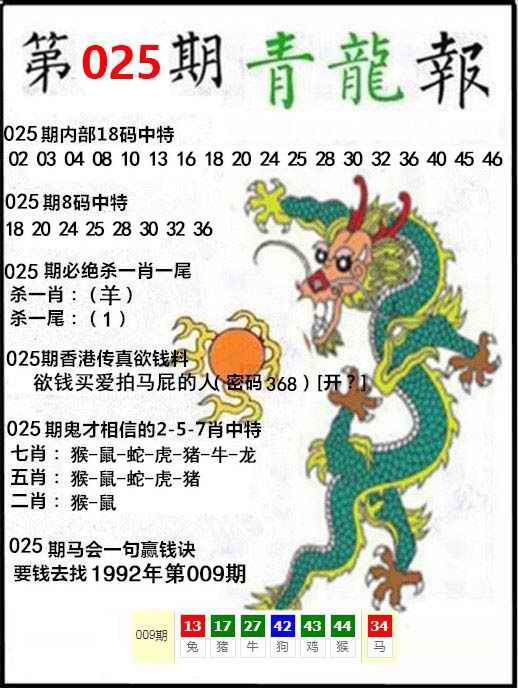 第025期青龍報
025期内部18码中特
02 03 04 08 10 13 16 18 20 24 25 28 30 32 36 40 45 46
025期8码中特
18 20 24 25 28 30 32 36
025 期必绝杀一肖一尾
杀一肖：（羊）
杀一尾：（1）
025期香港传真欲钱料
欲钱买爱拍马屁的人（密码368）[开？]
025期鬼才相信的2-5-7肖中特
七肖：猴-鼠-蛇-虎-猪-牛-龙
五肖：猴-鼠-蛇-虎-猪
二肖：猴-鼠
025期马会一句赢钱诀
要钱去找1992年第009期
009期 13 17 27 42 43 44 34
兔 猪 牛 狗 鸡 猴 马